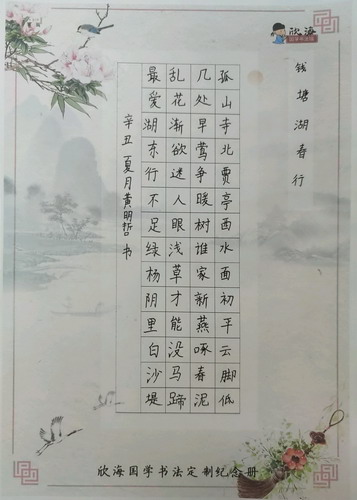 欣海
钱塘湖春行
孤山寺北贾亭西水面初平云脚低
几处早莺争暖树谁家新燕啄春泥
乱花渐欲迷人眼浅草才能没马蹄
最爱湖东行不足绿杨阴里白沙堤
辛丑夏月黄明哲书
欣海国学书法定制纪念册